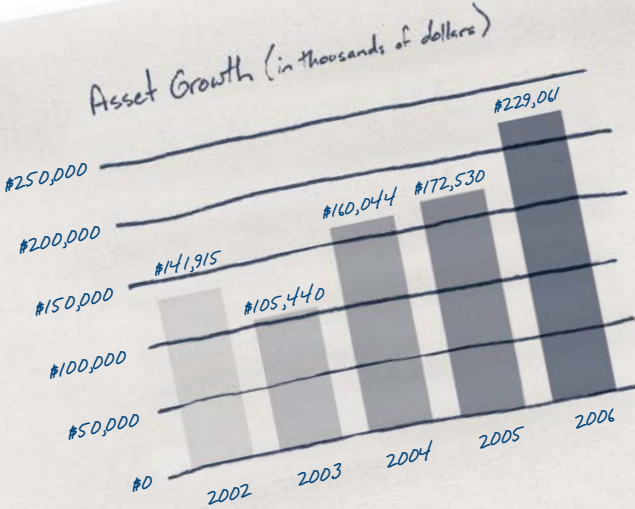 Asset Growth (in thousands of dollars)
$250,000
$200,000
$150,000
$100,000
$50,000
$0
$141,915
$105,440
$160,044
$172,530
$229,061
2002
2003
2004
2005
2006